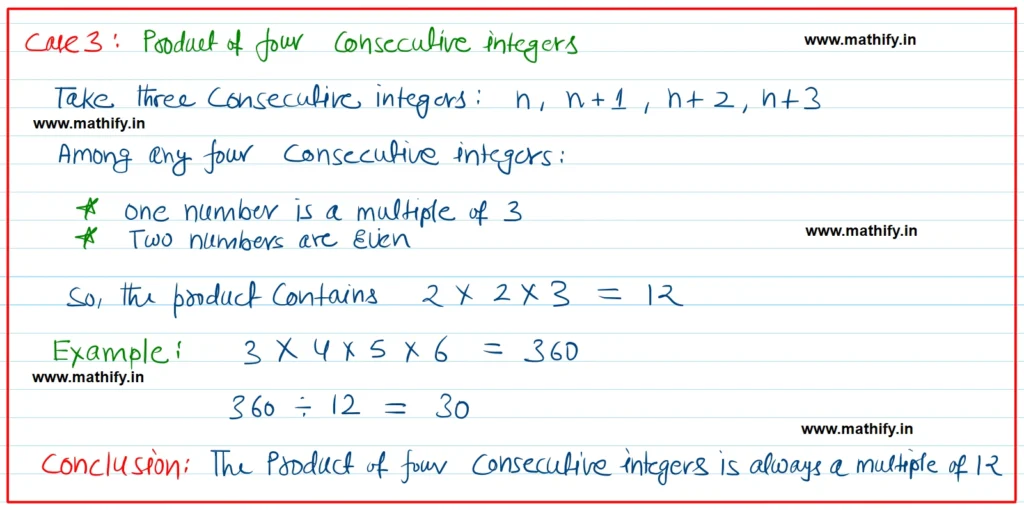 Case 3: Product of four Consecutive integers
www.mathify.in
Take three Consecutive integers: n, n+1, n+2, n+3
www.mathify.in
Among any four Consecutive integers:
* one number is a multiple of 3
* Two numbers are Even
www.mathify.in
So, the product Contains 2 × 2 × 3 = 12
Example: 3 × 4 × 5 × 6 = 360
www.mathify.in
360 ÷ 12 = 30
www.mathify.in
Conclusion: The Product of four Consecutive integers is always a multiple of 12